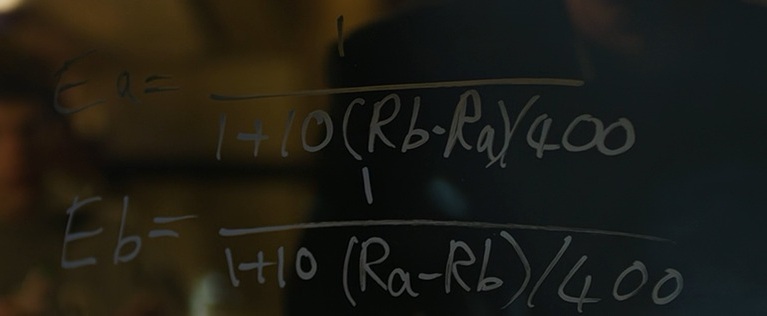 1
Ea=
1+10(Rb-Ra)/400
1
Eb=
1+10 (Ra-Rb)/400